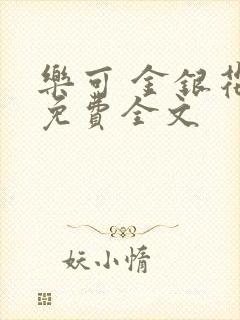 樂可 金銀花
免費全文
妖小惰